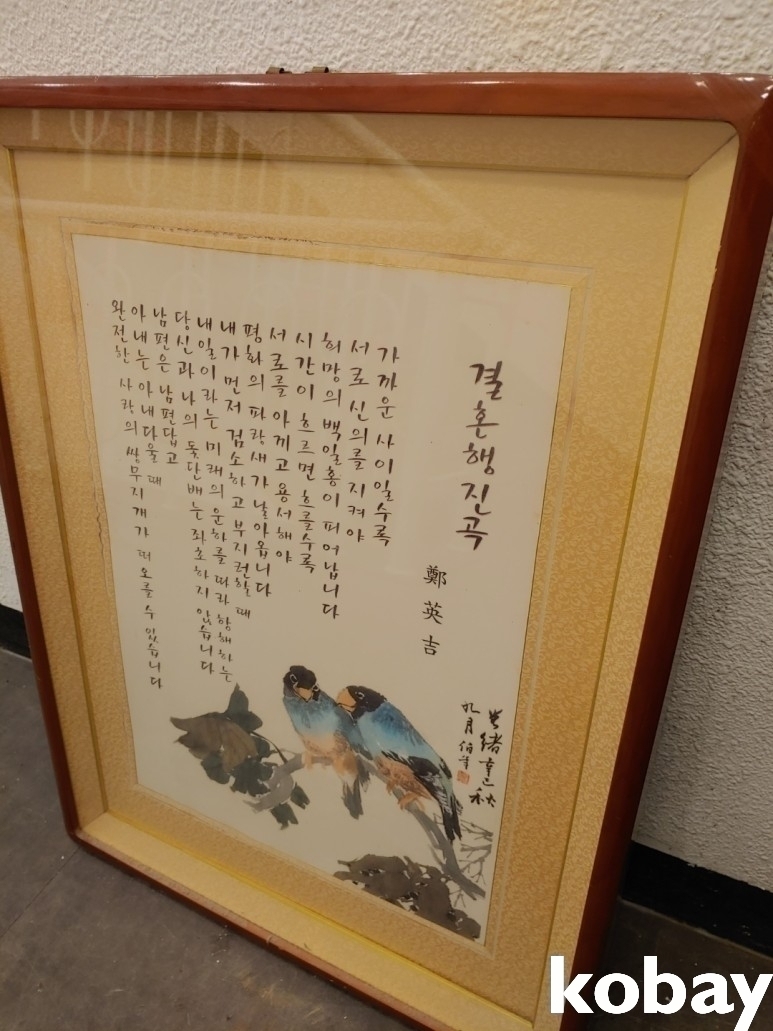 결혼행진곡
鄭英吉
가까운 사이일수록
서로 신의를 지켜야
희망의 백일홍이 피어납니다
시간이 흐르면 흐를수록
서로를 아끼고 용서해야
평화의 파랑새가 날아옵니다
내가 먼저 검소하고 부지런할 때
내일이라는 미래의 운하를 따라 항해하는
당신과 나의 돛단배는 좌초하지 않습니다
남편은 남편답고
아내는 아내다울 때
완전한 사랑의 쌍무지개가 떠오를 수 있습니다
秋
九月
kobay